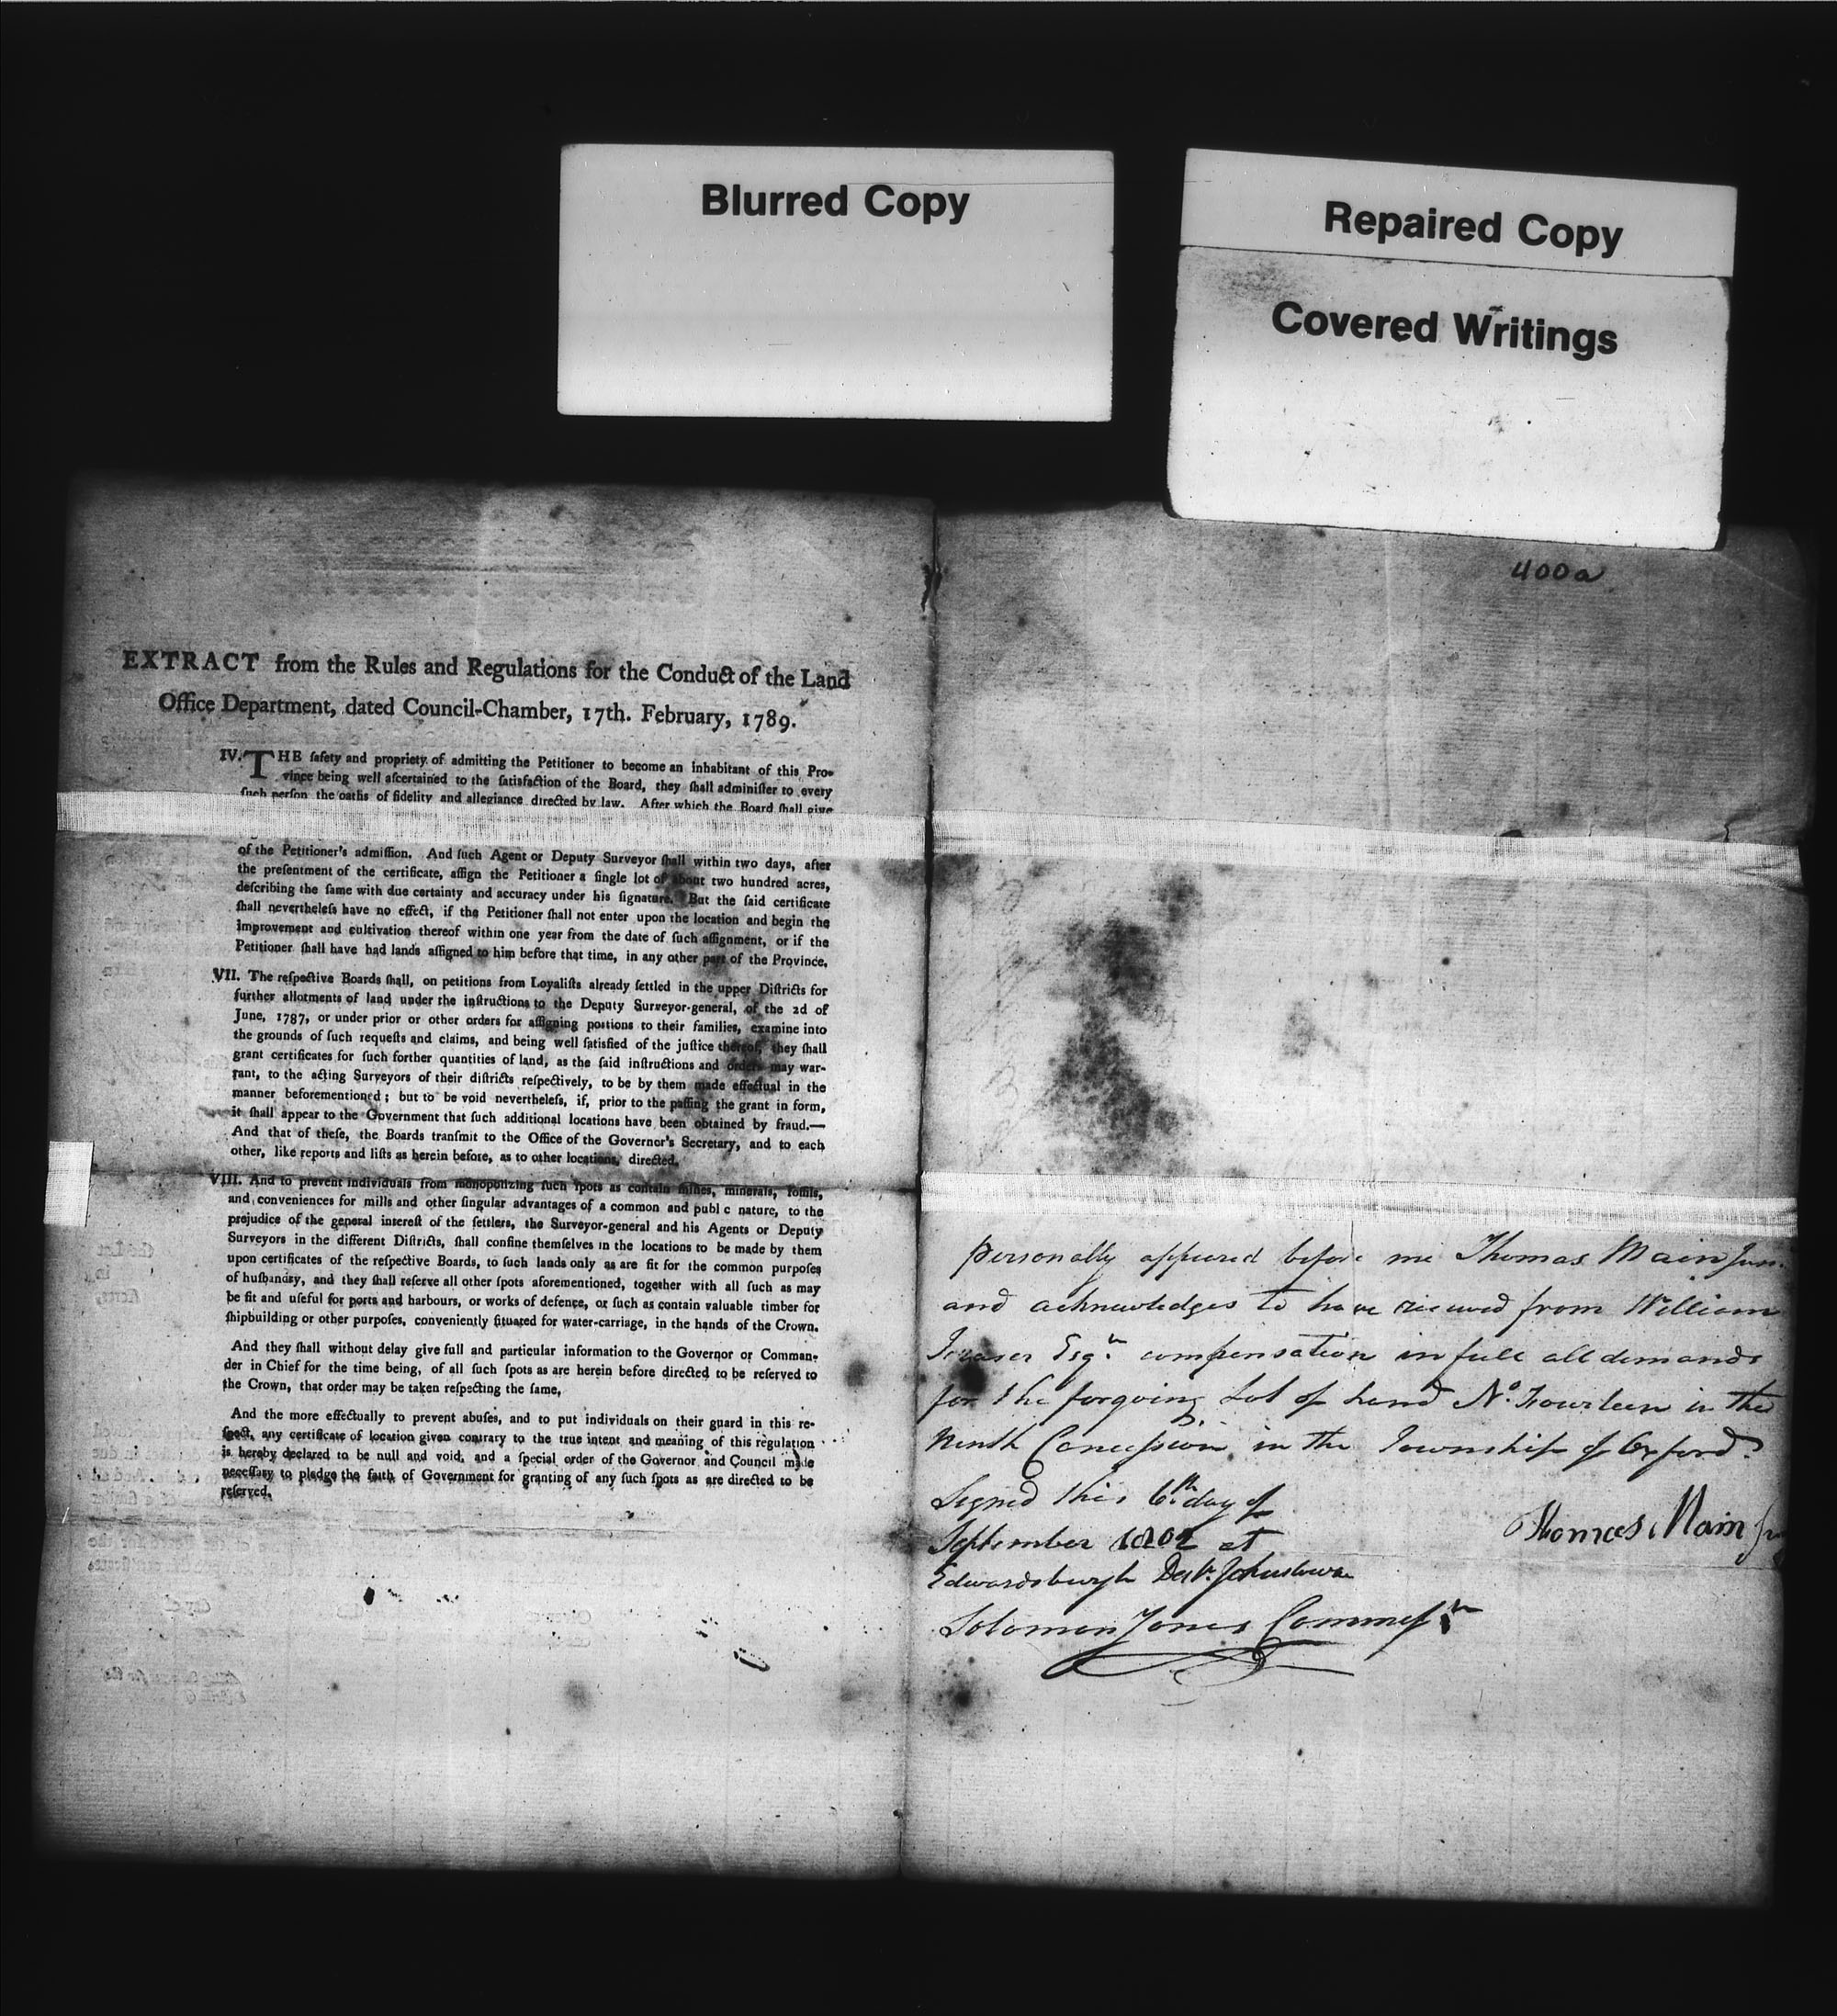 Blurred Copy
Repaired Copy
Covered Writings
400a
EXTRACT from the Rules and Regulations for the Conduct of the Land
Office Department, dated Council-Chamber, 17th. February, 1789.
IV. THE ſafety and propriety of admitting the Petitioner to become an inhabitant of this Pro-
vince being well aſcertained to the ſatisfaction of the Board, they ſhall adminiſter to every
ſuch perſon the oaths of fidelity and allegiance directed by law. After which the Board ſhall give
of the Petitioner's admiſſion. And ſuch Agent or Deputy Surveyor ſhall within two days, after
the preſentment of the certificate, aſſign the Petitioner a ſingle lot of about two hundred acres,
deſcribing the ſame with due certainty and accuracy under his ſignature. But the ſaid certificate
ſhall nevertheleſs have no effect, if the Petitioner ſhall not enter upon the location and begin the
improvement and cultivation thereof within one year from the date of ſuch aſſignment, or if the
Petitioner ſhall have had lands aſſigned to him before that time, in any other part of the Province.
VII. The reſpective Boards ſhall, on petitions from Loyaliſts already ſettled in the upper Diſtricts for
further allotments of land under the inſtructions to the Deputy Surveyor-general, of the 2d of
June, 1787, or under prior or other orders for aſſigning portions to their families, examine into
the grounds of ſuch requeſts and claims, and being well ſatisfied of the juſtice thereof, they ſhall
grant certificates for ſuch forther quantities of land, as the ſaid inſtructions and orders may war-
rant, to the acting Surveyors of their diſtricts reſpectively, to be by them made effectual in the
manner beforementioned; but to be void nevertheleſs, if, prior to the paſſing the grant in form,
it ſhall appear to the Government that ſuch additional locations have been obtained by fraud.—
And that of theſe, the Boards tranſmit to the Office of the Governor's Secretary, and to each
other, like reports and liſts as herein before, as to other locations, directed.
VIII. And to prevent individuals from monopolizing ſuch ſpots as contain mines, minerals, foſſils,
and conveniences for mills and other ſingular advantages of a common and publ c nature, to the
prejudice of the general intereſt of the ſettlers, the Surveyor-general and his Agents or Deputy
Surveyors in the different Diſtricts, ſhall confine themſelves in the locations to be made by them
upon certificates of the reſpective Boards, to ſuch lands only as are fit for the common purpoſes
of huſbandry, and they ſhall reſerve all other ſpots aforementioned, together with all ſuch as may
be fit and uſeful for ports and harbours, or works of defence, or ſuch as contain valuable timber for
ſhipbuilding or other purpoſes, conveniently ſituated for water-carriage, in the hands of the Crown.
And they ſhall without delay give full and particular information to the Governor or Comman-
der in Chief for the time being, of all ſuch ſpots as are herein before directed to be reſerved to
the Crown, that order may be taken reſpecting the ſame,
And the more effectually to prevent abuſes, and to put individuals on their guard in this re-
ſpect, any certificate of location given contrary to the true intent and meaning of this regulation
is hereby declared to be null and void, and a ſpecial order of the Governor and Council made
neceſſary to pledge the faith of Government for granting of any ſuch ſpots as are directed to be
reſerved.
Personally appeared before me Thomas Main Jun.
and acknowledges to have received from William
Fraser Esqr. compensation in full all demands
for the forgoing Lot of Land No. Fourteen in the
Ninth Concession in the Township of Oxford.
Signed this 6th day of
September 1802 at
Edwardsburgh Dest. Johnstown
Thomas Main Jun
Solomon Jones Commessr